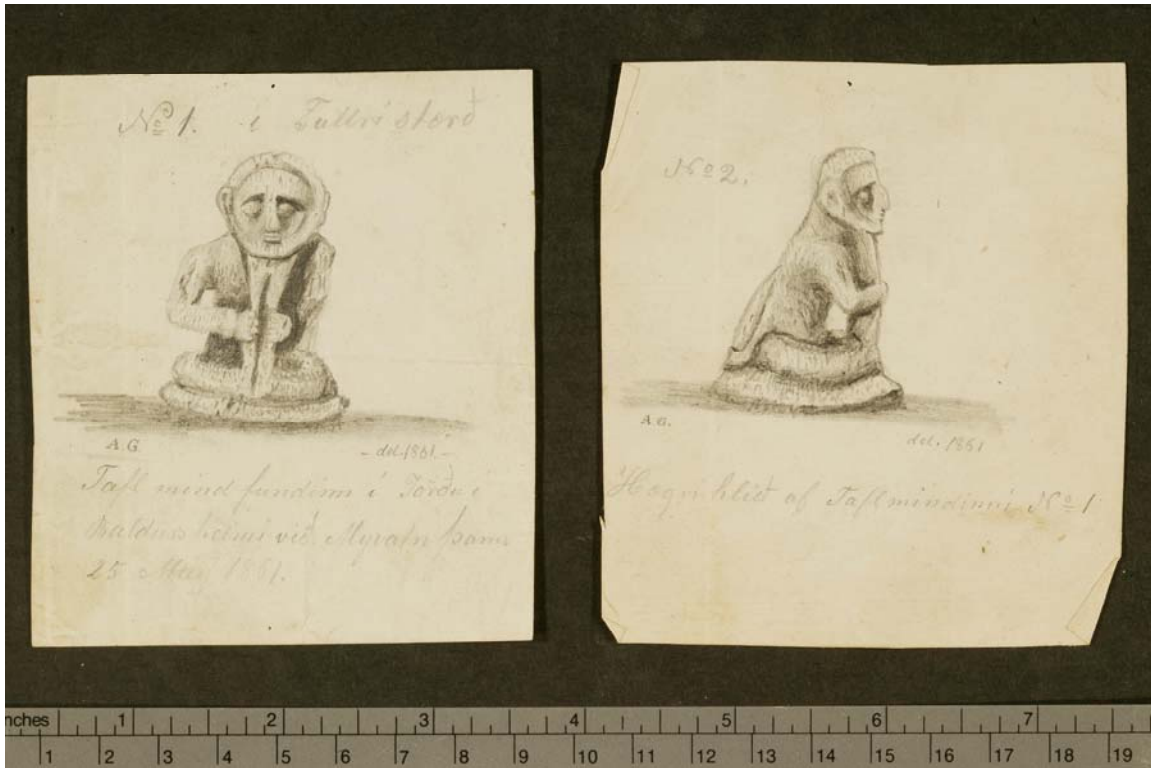 No 1. í Fullri stærð
A.G.
- del. 1861. -
Tafl mind fundinn í Jörðu í
Baldurs heimi við Myvatn þann
25 May 1861.
No 2.
A.G.
del. 1861
Hægri hlið af Taflmindinni No 1
inches 1 2 3 4 5 6 7
1 2 3 4 5 6 7 8 9 10 11 12 13 14 15 16 17 18 19